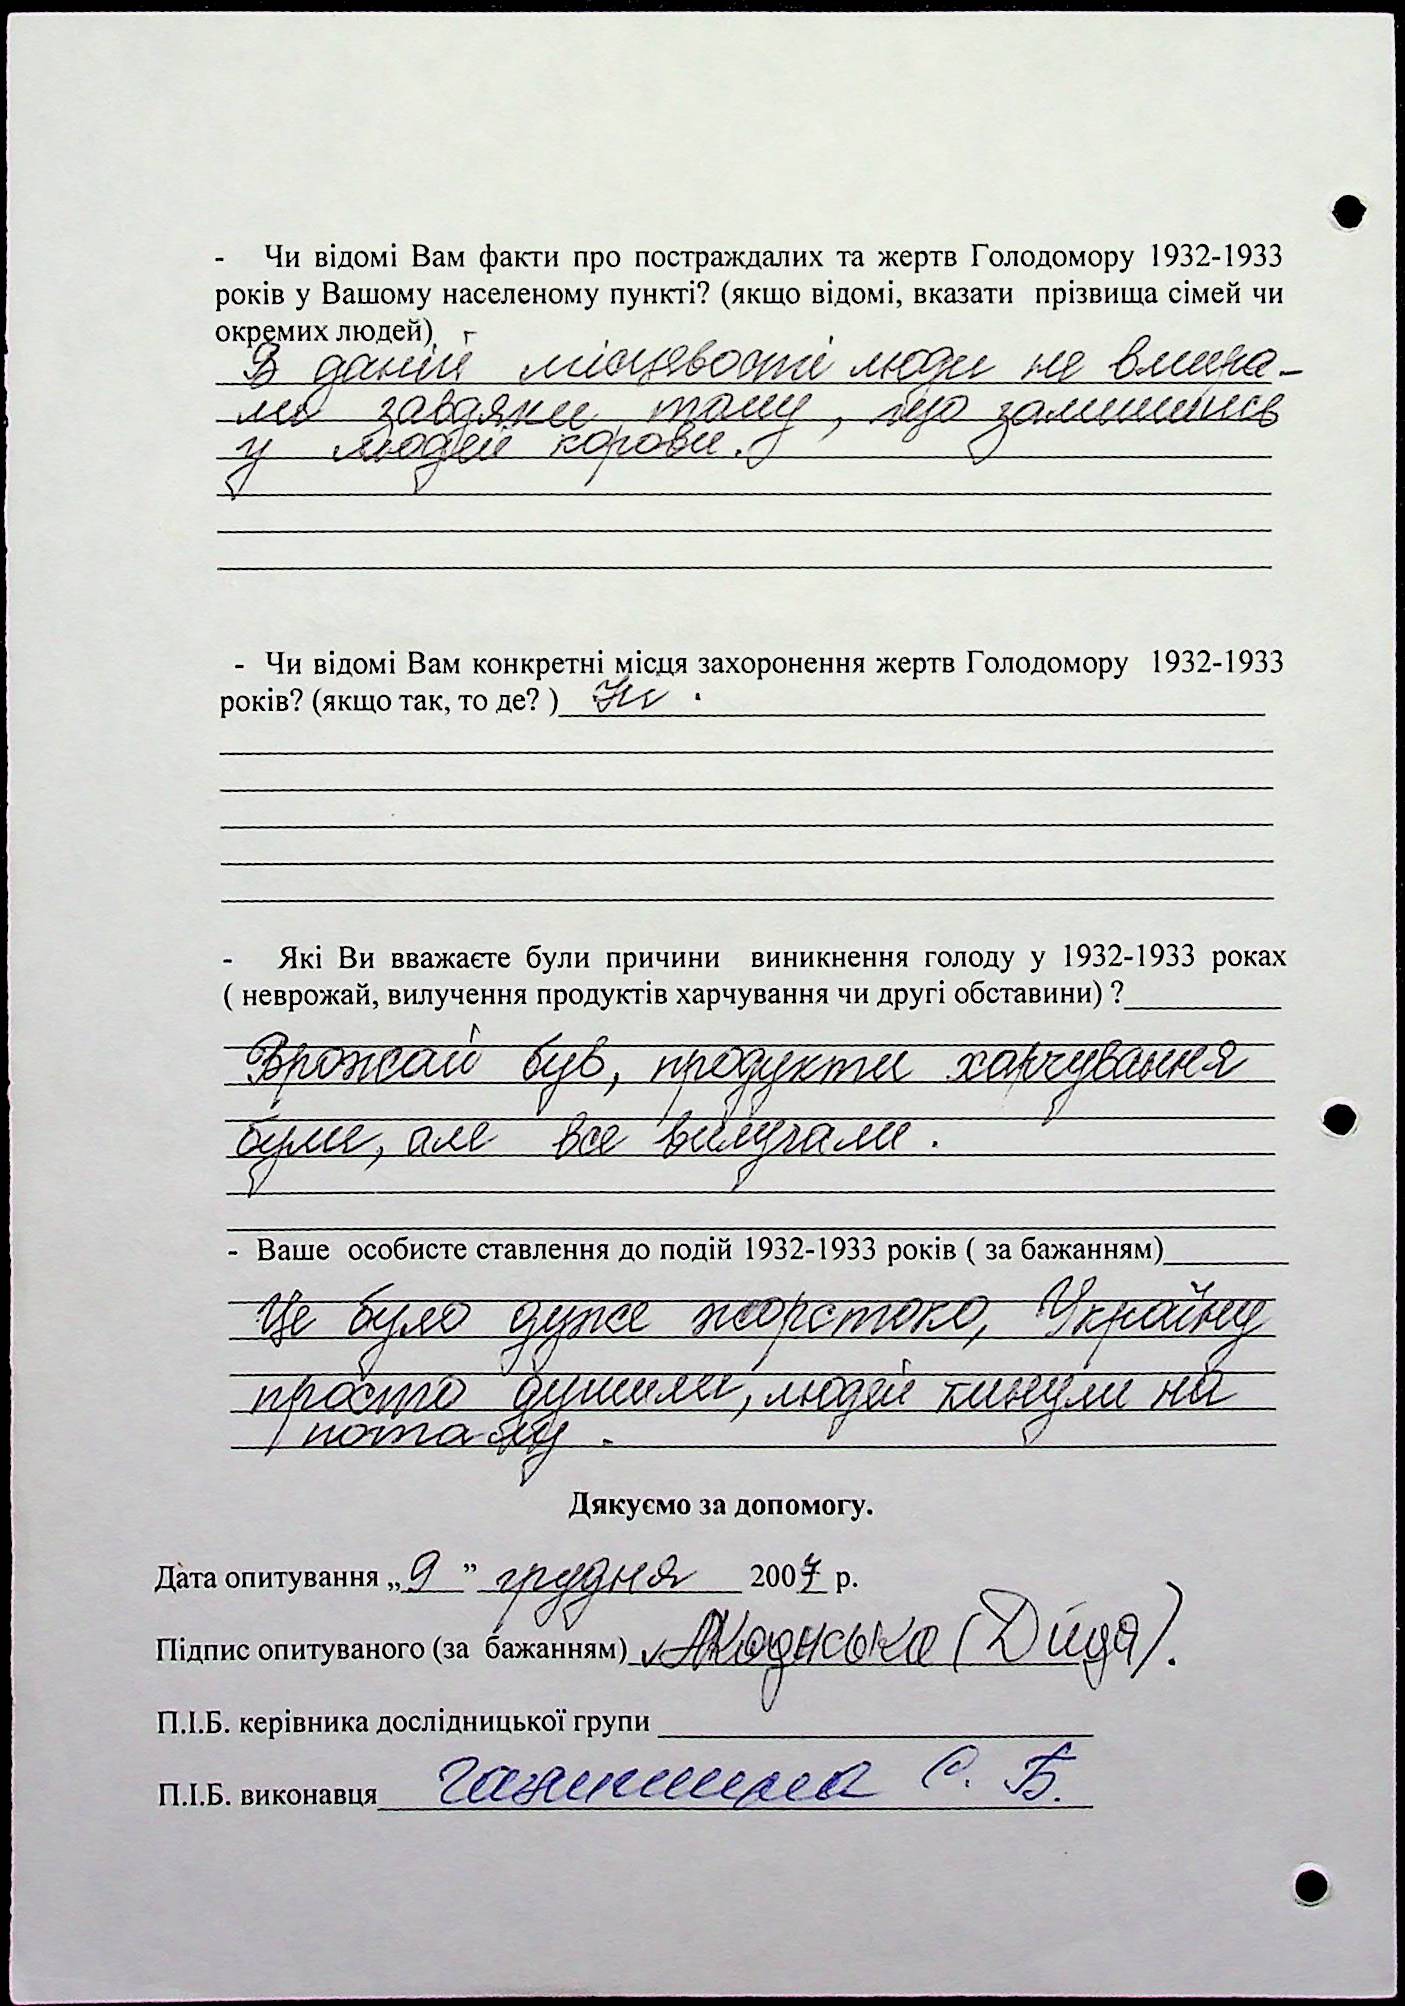 - Чи відомі Вам факти про постраждалих та жертв Голодомору 1932-1933
років у Вашому населеному пункті? (якщо відомі, вказати прізвища сімей чи
окремих людей)
В даній місцевості люди не вмира-
ли завдяки тому, що залишились
у людей корови.
- Чи відомі Вам конкретні місця захоронення жертв Голодомору 1932-1933
років? (якщо так, то де? ) Ні.
- Які Ви вважаєте були причини виникнення голоду у 1932-1933 роках
( неврожай, вилучення продуктів харчування чи другі обставини) ?
Врожай був, продукти харчування
були, але все вилучали.
- Ваше особисте ставлення до подій 1932-1933 років ( за бажанням)
Це було дуже жорстоко, Україну
просто душили, людей кинули на
поталу.
Дякуємо за допомогу.
Дата опитування „9” грудня 2007 р.
Підпис опитуваного (за бажанням) (Дида).
П.І.Б. керівника дослідницької групи
П.І.Б. виконавця С. Б.